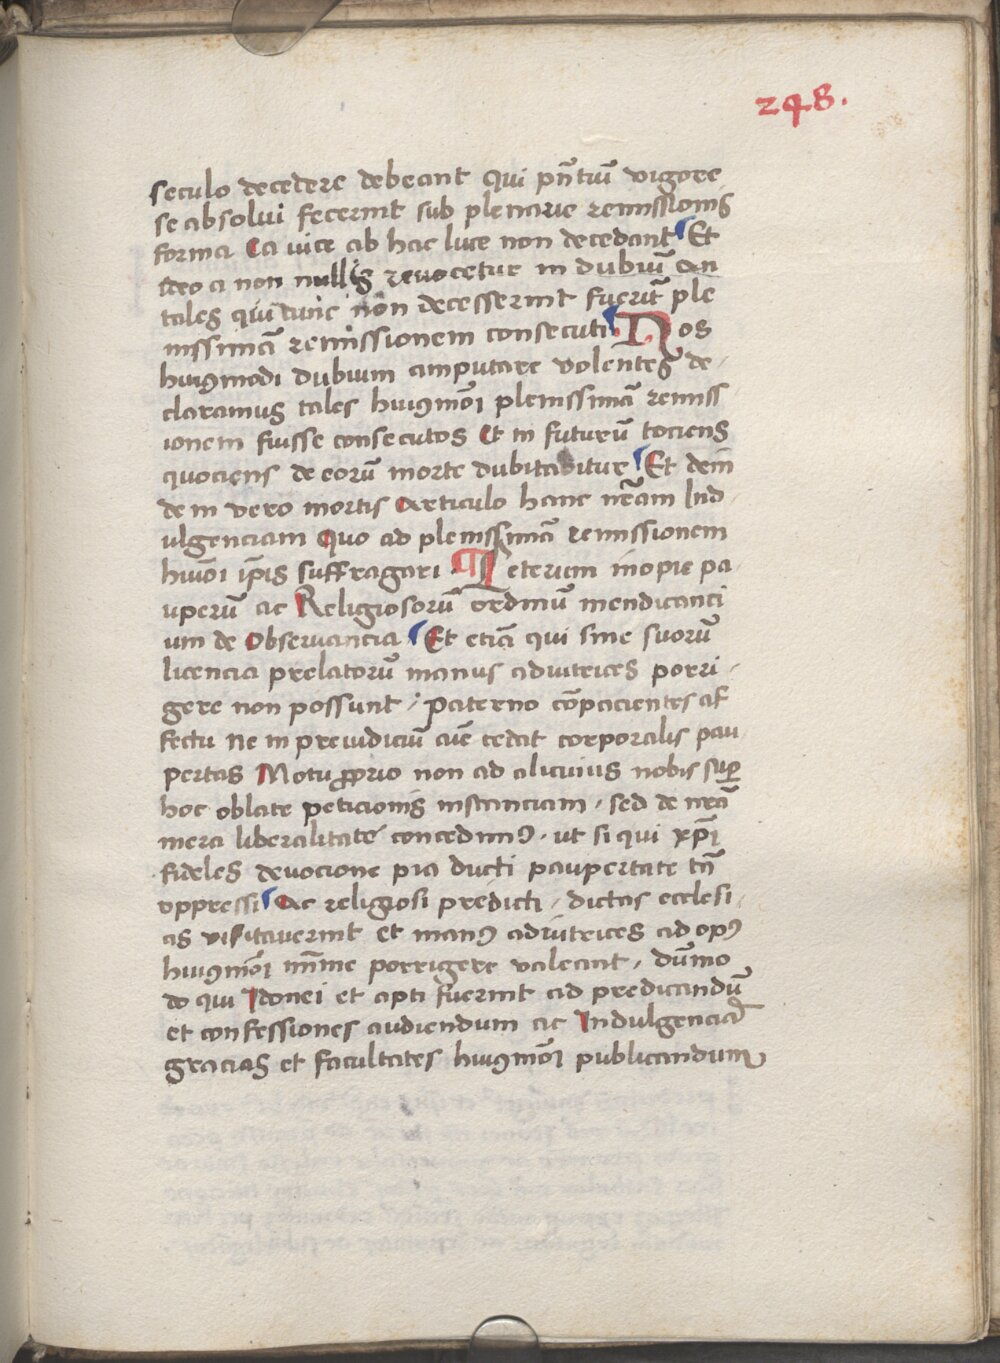 248.
seculo decedere debeant Qui pñtiū vigore
se absolui fecerint sub plenarie remissionis
forma Ea vice ab hac luce non decedant Et
ideo a non nullis revocetur in dubiū An
tales qui tunc nōn decesserint fuerīt ple
nissimā remissionem consecuti Nos
huiꝯmodi dubium amputare volentes de-
claramus tales huiꝯmōi plenissimā remiss
ionem fuisse consecutos Et in futurū tociens
quociens de eorū morte dubitabitur Et dein
de in vero mortis Articulo hanc nr̄am Ind
ulgenciam Quo ad plenissimā remissionem
huiōi ip̄is suffragari Ceterum inopie pa
uperū ac Religiosorū ordinū mendicanci
um de Observancia Et etiā qui sine suorū
licencia prelatorū manus adiutrices porri-
gere non possunt / Paterno cōpacientes af
fectu Ne in preiudiciū aīe cedat corporalis pau
pertas Motu ꝓprio non ad alicuius nobis suꝑ
hoc oblate peticionis instanciam / sed de nr̄a
mera liberalitate concedimꝯ · ut si qui xp̄i
fideles devocione pia ducti paupertate tn̄
oppressi Ac religiosi predicti / dictas ecclesi-
as visitauerint et manꝯ adiutrices ad opꝯ
huiꝯmōi mīme porrigere valeant / dūmo
do qui Idonei et apti fuerint ad predicandū
et confessiones audiendum ac Indulgencias
gracias et facultates huiꝯmōi publicandum